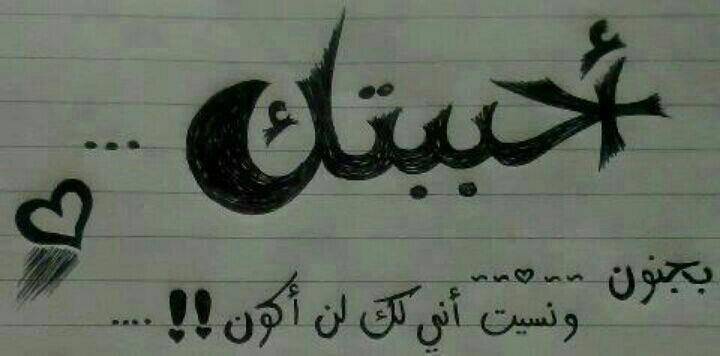 أحببتك ...
بجنون ~~♡~~
ونسيت أني لك لن أكون !! ....